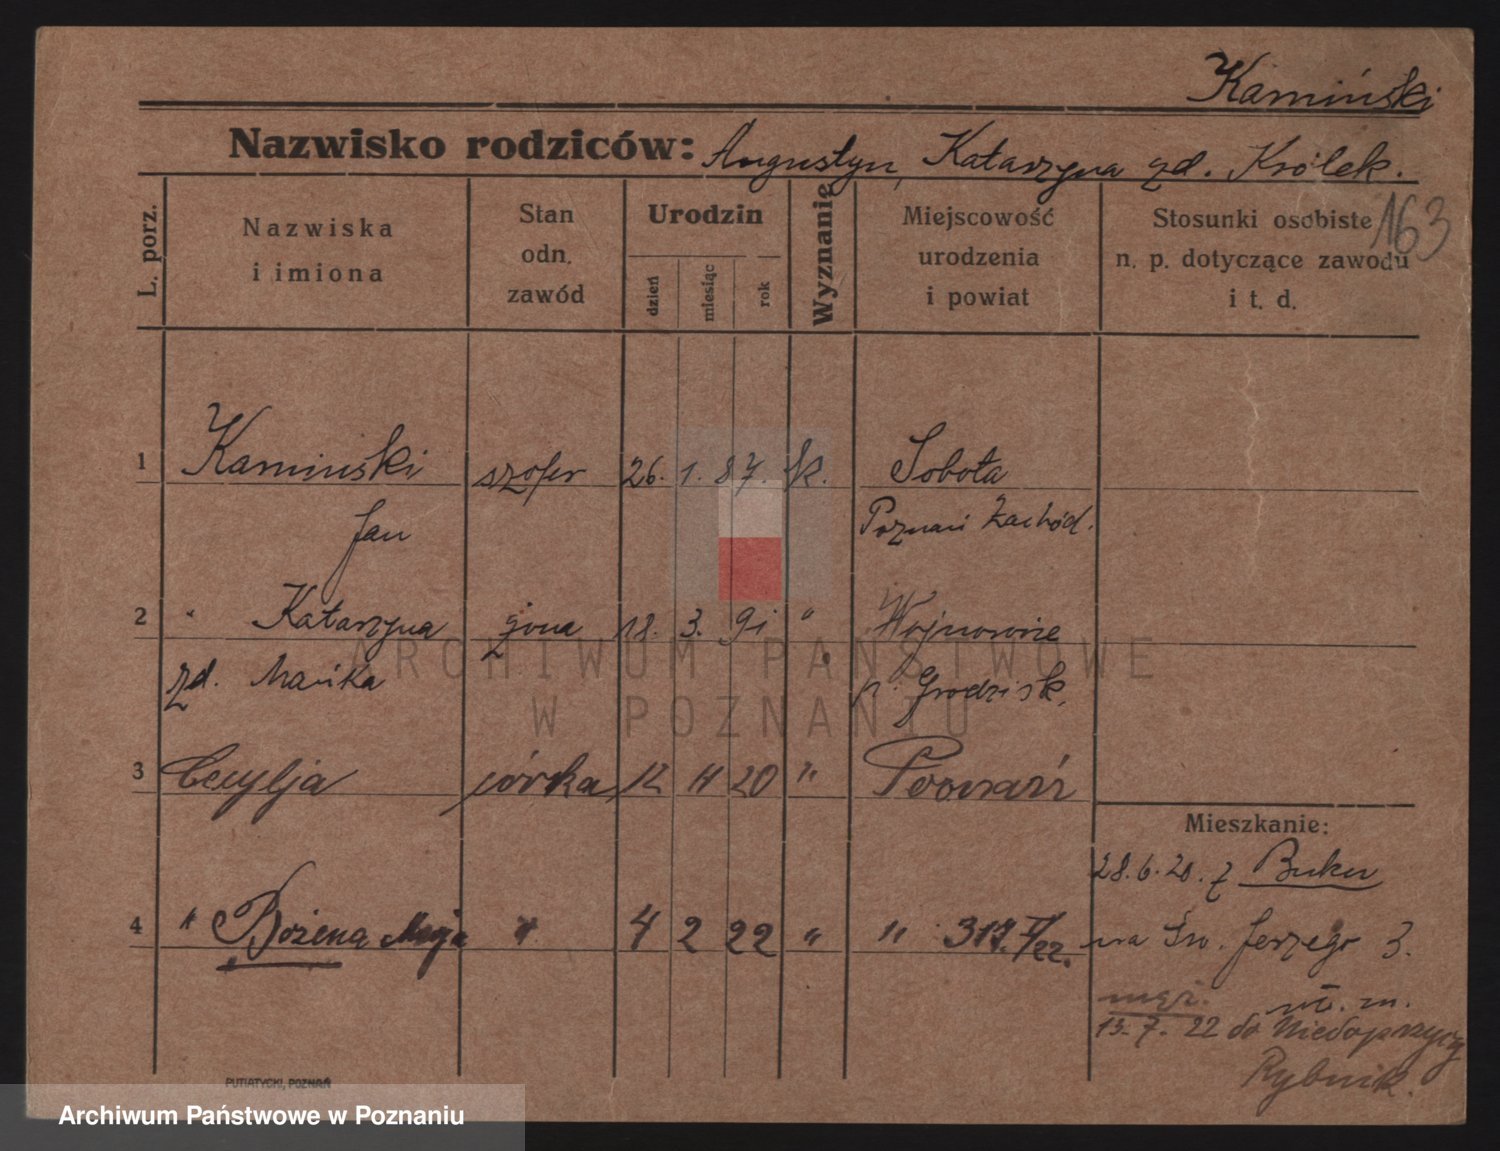 Kamiński
Nazwisko rodziców: Augustyn, Katarzyna zd. Królek.
163
L. porz.
Nazwiska
i imiona
Stan
odn.
zawód
Urodzin
dzień
miesiąc
rok
Wyznanie
Miejscowość
urodzenia
i powiat
Stosunki osobiste
n. p. dotyczące zawodu
i t. d.
1 Kaminski szofer 26. 1. 87. rk. Sobota
Jan Poznań Zachód.
2 " Katarzyna żona 18. 3. 91 " Wojnowice
zd. Mańka p. Grodzisk.
3 Cecylja córka 12 11 20 " Poznań
Mieszkanie:
28.6.20. z Buku
4 " Bożena Maja " 4 2 22 " " 317. II/22.
na Św. Jerzego 3.
mąż.
13.7.22 do Niedoprzycy
Rybnik.
PUTIATYCKI, POZNAŃ
ARCHIWUM PAŃSTWOWE
W POZNANIU
Archiwum Państwowe w Poznaniu